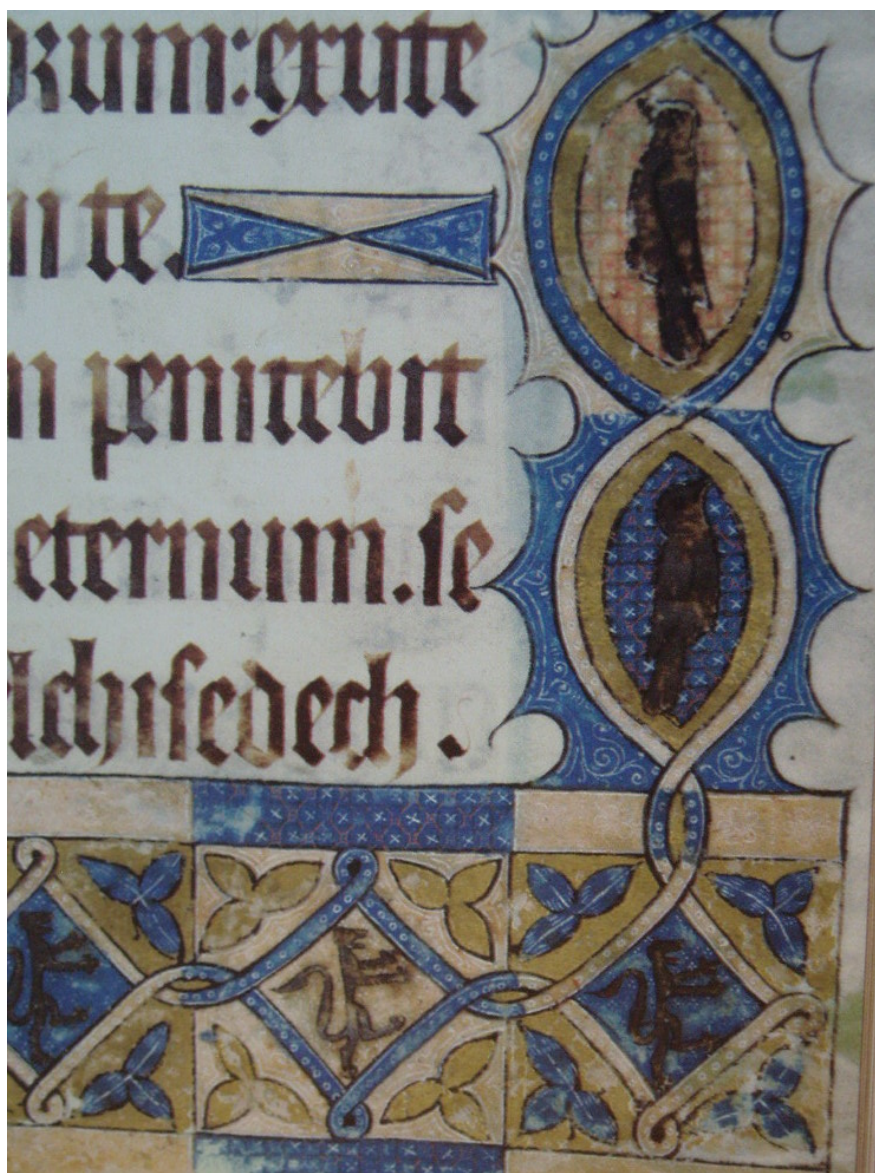 orum:exute
ui te.
n penitebit
eternum.se
lchisedech.